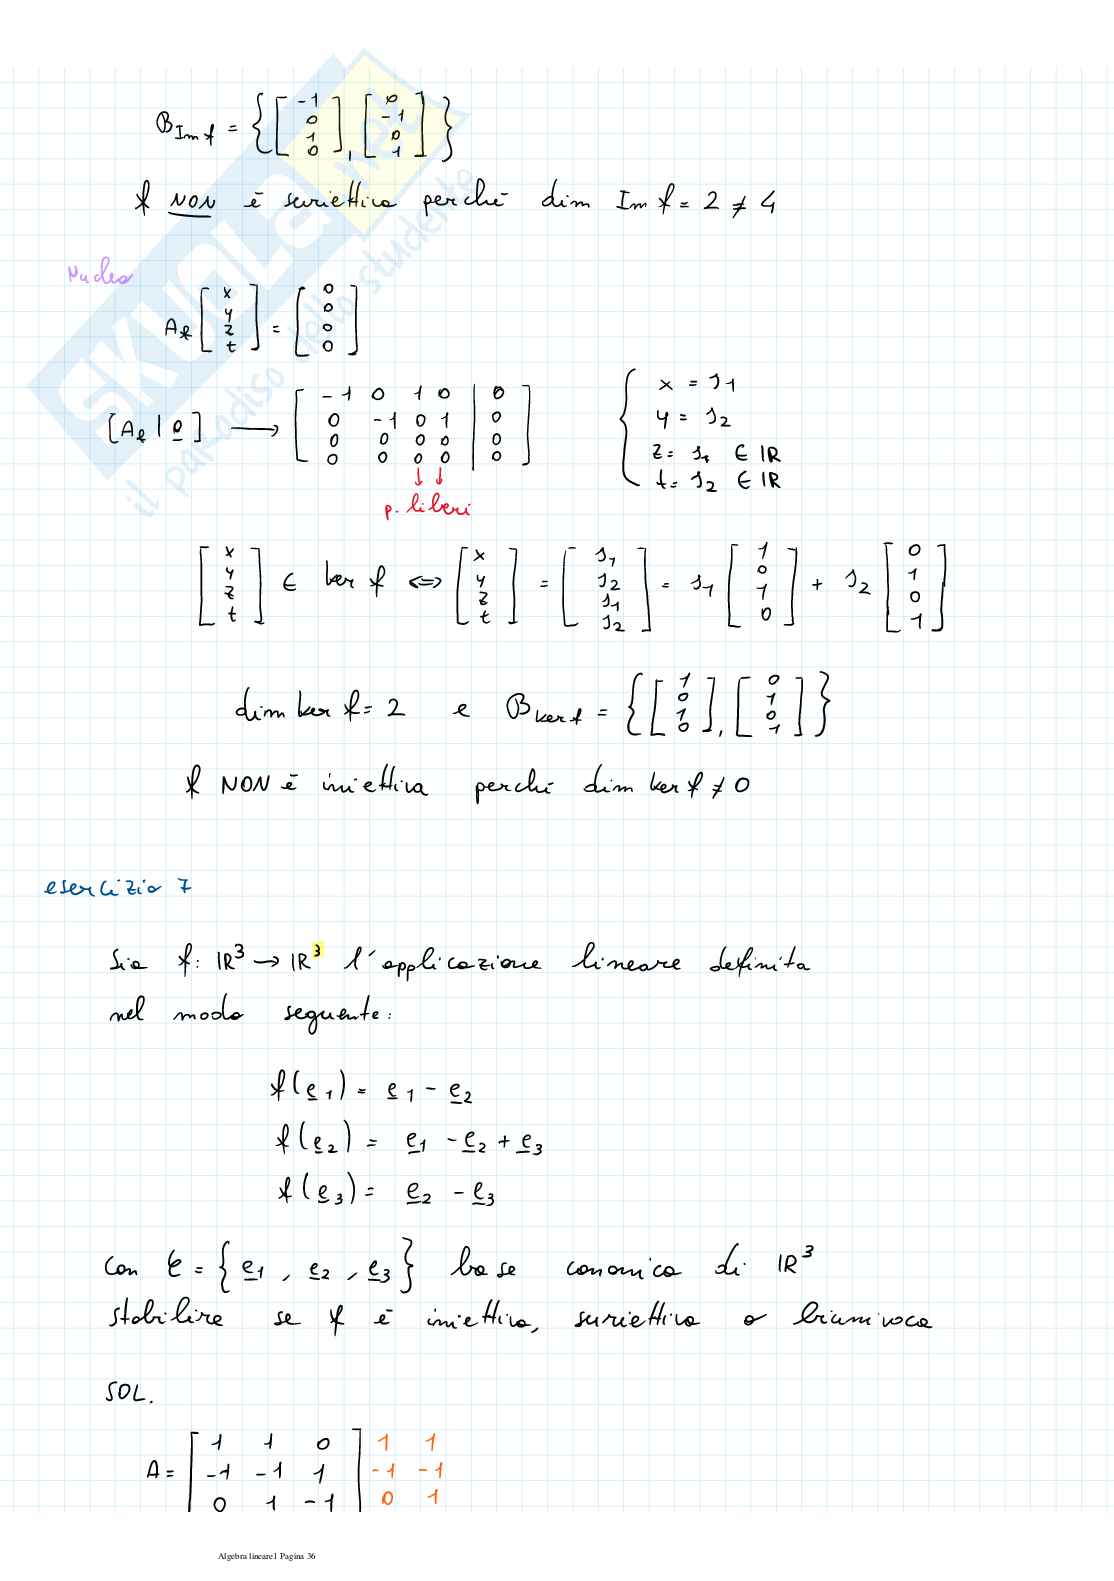 B_Im f = { [-1 0 1 0], [0 -1 0 1] }
f NON è suriettiva perché dim Im f = 2 ≠ 4
Nucleo
A_f [x y z t] = [0 0 0 0]
[A_f | 0] → [ -1 0 1 0 | 0
0 -1 0 1 | 0
0 0 0 0 | 0
0 0 0 0 | 0 ]
↓ ↓
p. liberi
{ x = s1
y = s2
z = s1 ∈ IR
t = s2 ∈ IR
[x y z t] ∈ ker f ⇔ [x y z t] = [s1 s2 s1 s2] = s1 [1 0 1 0] + s2 [0 1 0 1]
dim ker f = 2 e B_ker f = { [1 0 1 0], [0 1 0 1] }
f NON è iniettiva perché dim ker f ≠ 0
esercizio 7
Sia f: IR³ → IR³ l'applicazione lineare definita
nel modo seguente:
f(e1) = e1 - e2
f(e2) = e1 - e2 + e3
f(e3) = e2 - e3
con C = { e1, e2, e3 } base canonica di IR³
stabilire se f è iniettiva, suriettiva o biunivoca
SOL.
A = [ 1 1 0 ] 1 1
-1 -1 1 -1 -1
0 1 -1 0 1
Algebra lineare1 Pagina 36
SKUOLA.net
il paradiso dello studente